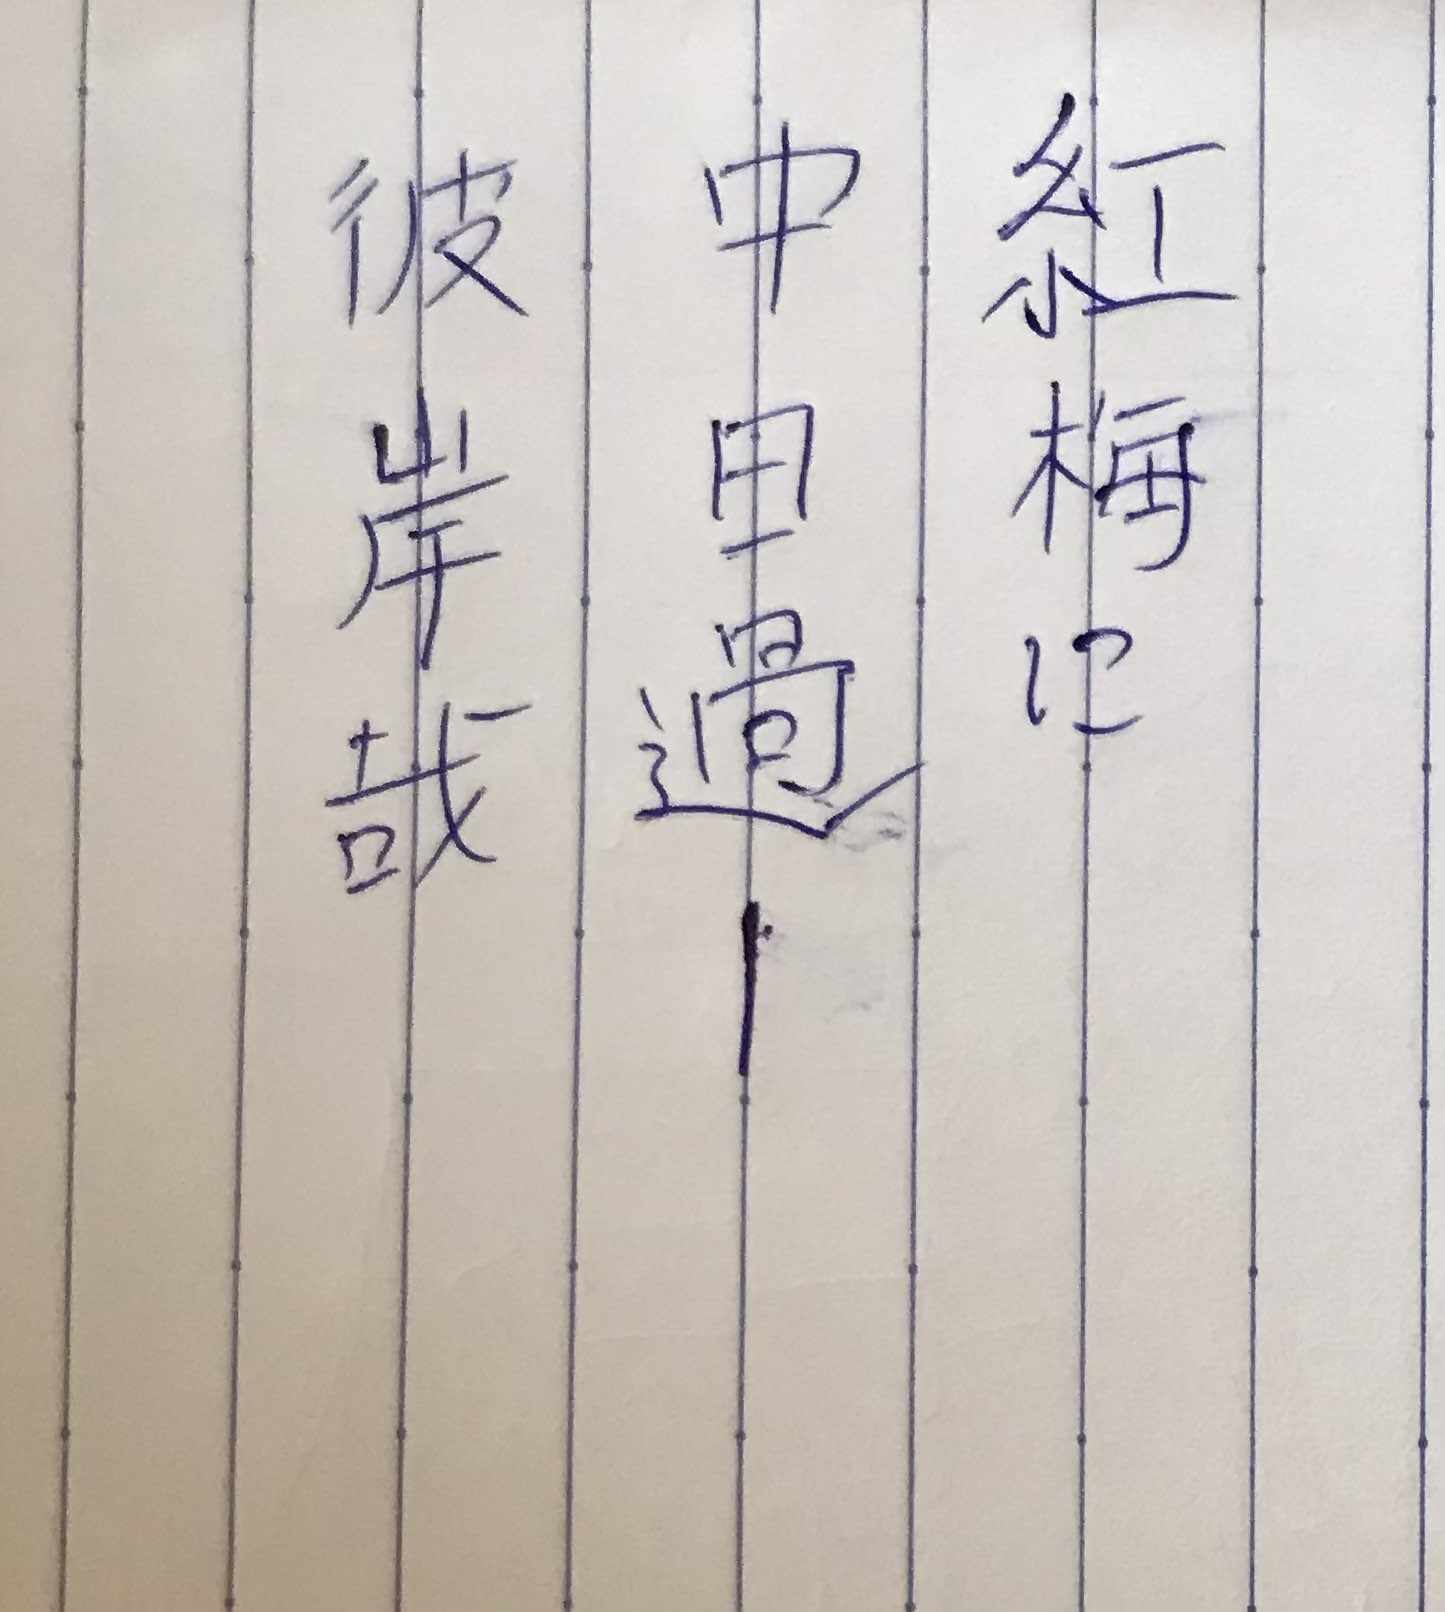 紅梅に
中日過し
彼岸哉